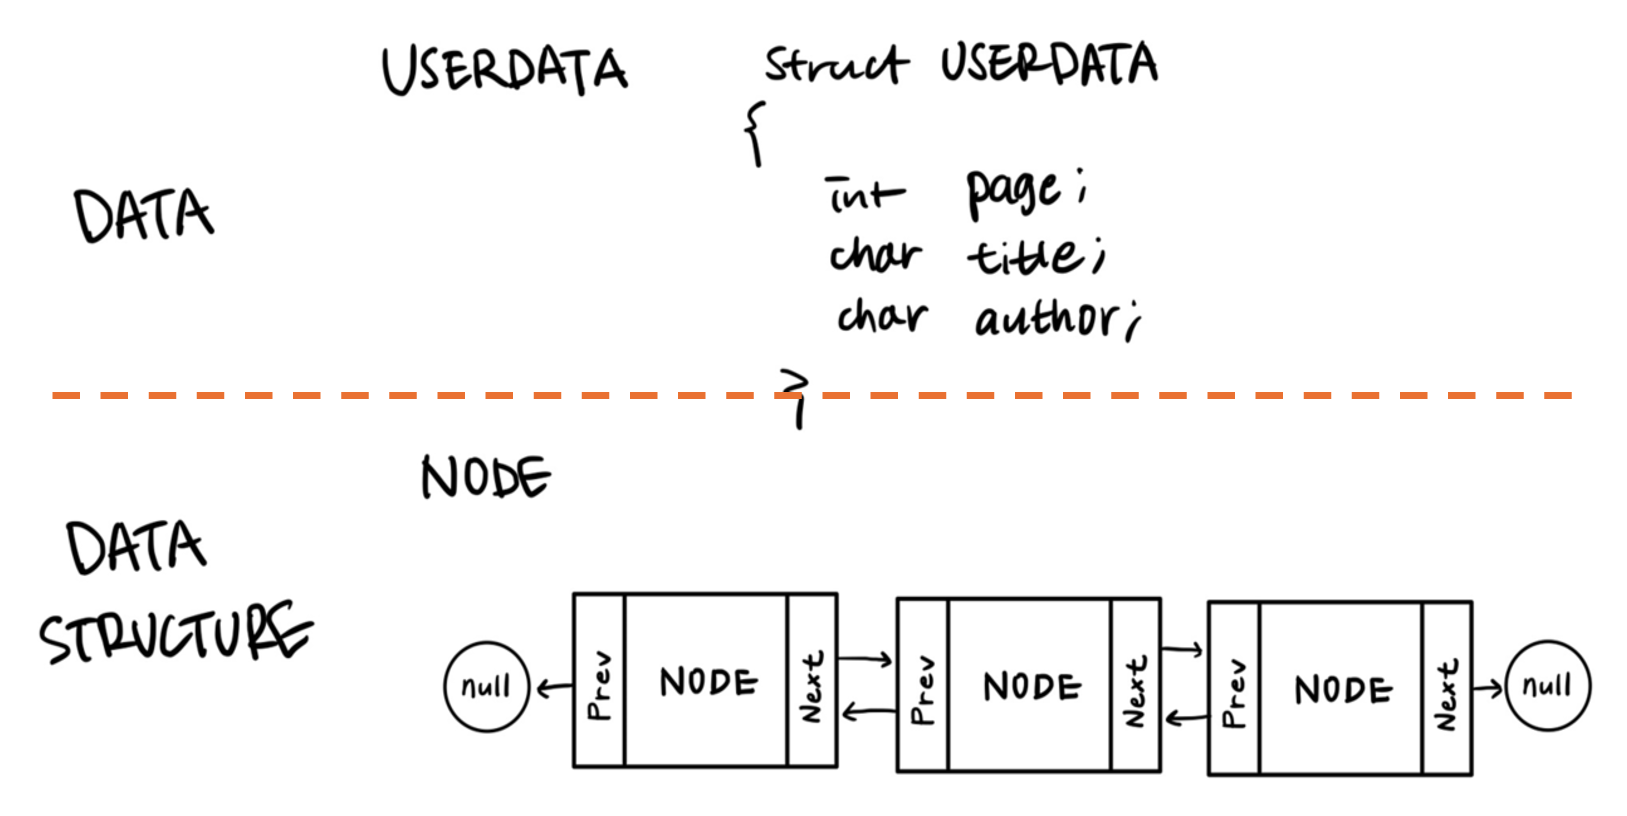 USERDATA struct USERDATA
{
DATA
int page;
char title;
char author;
}
NODE
DATA
STRUCTURE
null Prev NODE Next Prev NODE Next Prev NODE Next null